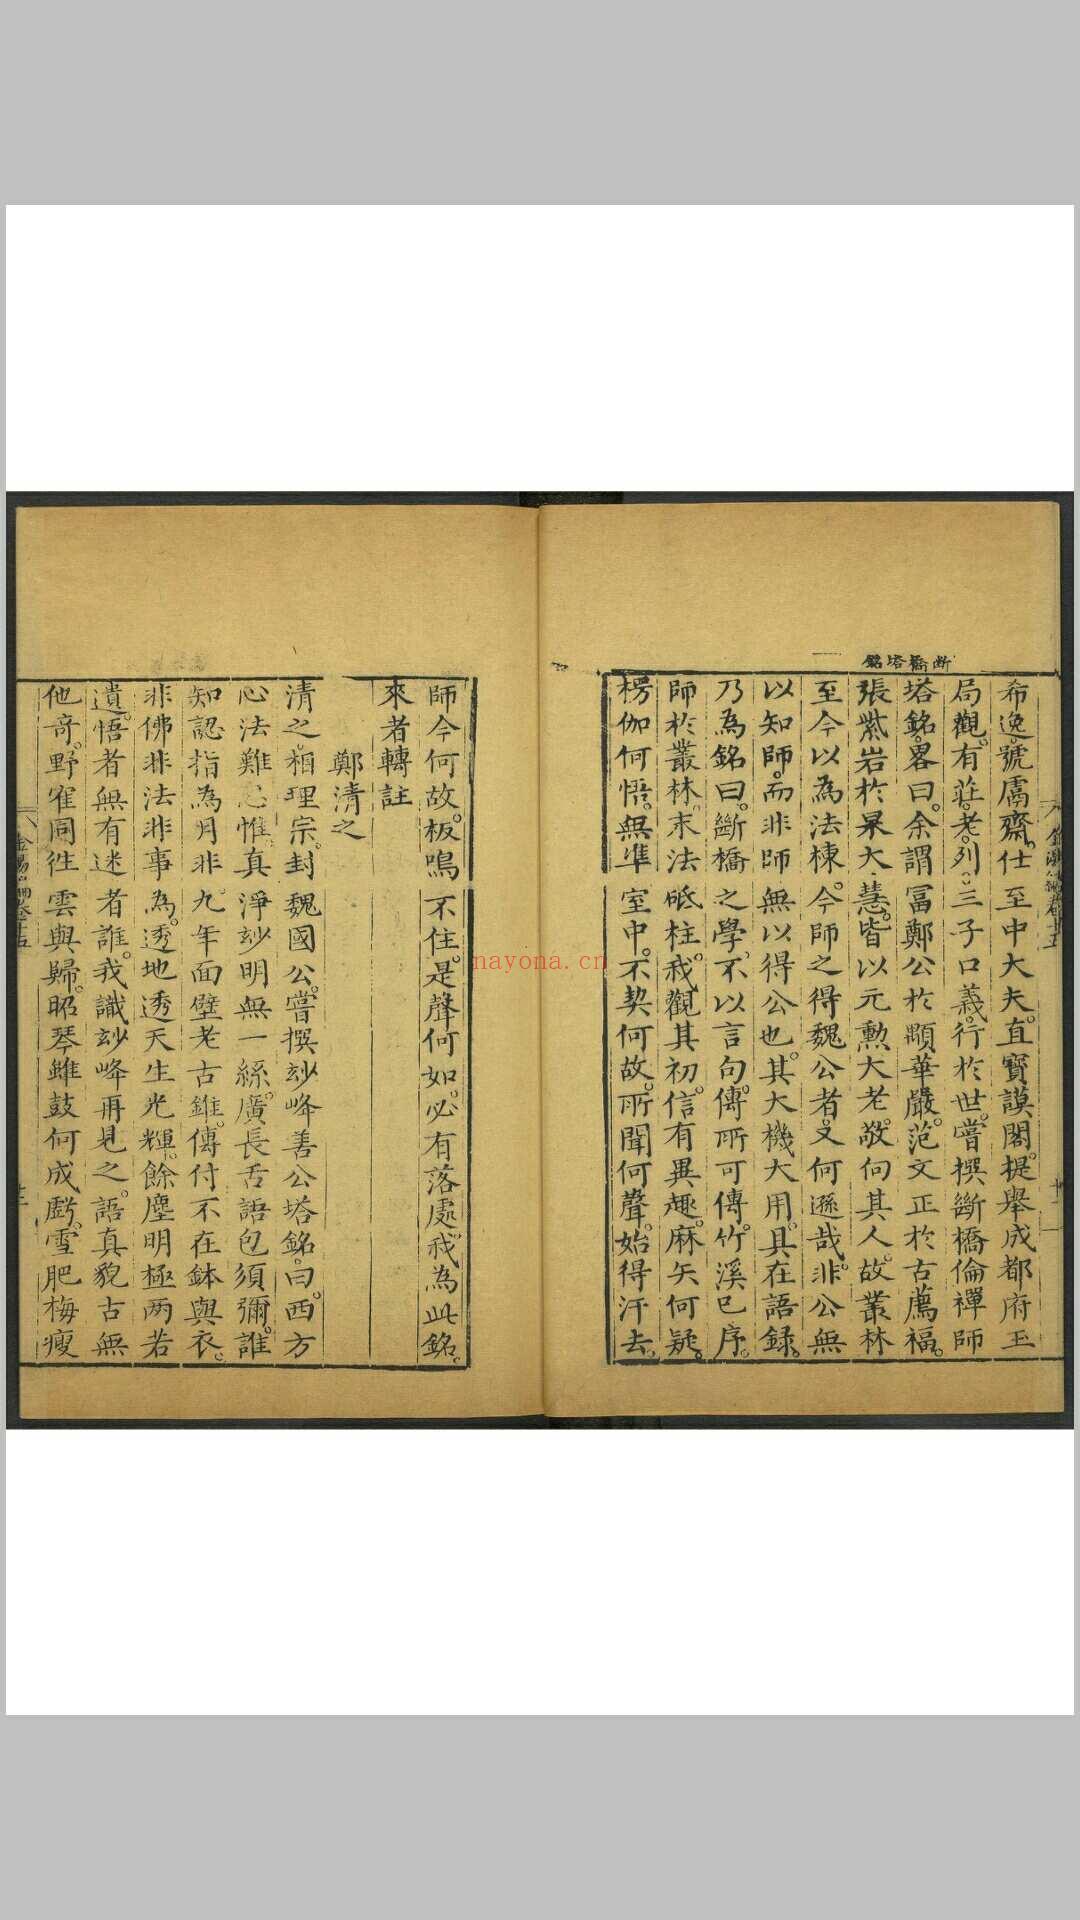 斷橋塔銘
希逸。號鬳齋。仕至中大夫。直寶謨閣。提舉成都府玉
局觀。有莊。老。列。三子口義。行於世。嘗撰斷橋倫禪師
塔銘。畧曰。余謂富鄭公於顒華嚴。范文正於古薦福。
張紫岩於杲大慧。皆以元勳大老。敬向其人。故叢林
至今以為法棟。今師之得魏公者。又何遜哉。非公無
以知師。而非師無以得公也。其大機大用。具在語録。
乃為銘曰。斷橋之學。不以言句。傳所可傳。竹溪已序。
師於叢林。末法砥柱。我觀其初。信有異趣。麻矢何疑。
楞伽何悟。無準室中。不契何故。所聞何聲。始得汗去。
師今何故。板鳴不住。是聲何如。必有落處。我為此銘。
來者轉註
鄭清之
清之。相理宗。封魏國公。嘗撰玅峰善公塔銘。曰。西方
心法難心惟。真淨玅明無一絲。廣長舌語包須彌。誰
知認指為月非。九年面壁老古錐。傳付不在鉢與衣。
非佛非法非事為。透地透天生光輝。餘塵明極兩若
遺。悟者無有迷者誰。我識玅峰再見之。語真貌古無
他奇。野寉同徃雲與歸。昭琴雖鼓何成虧。雪肥梅瘦
nayona.cn